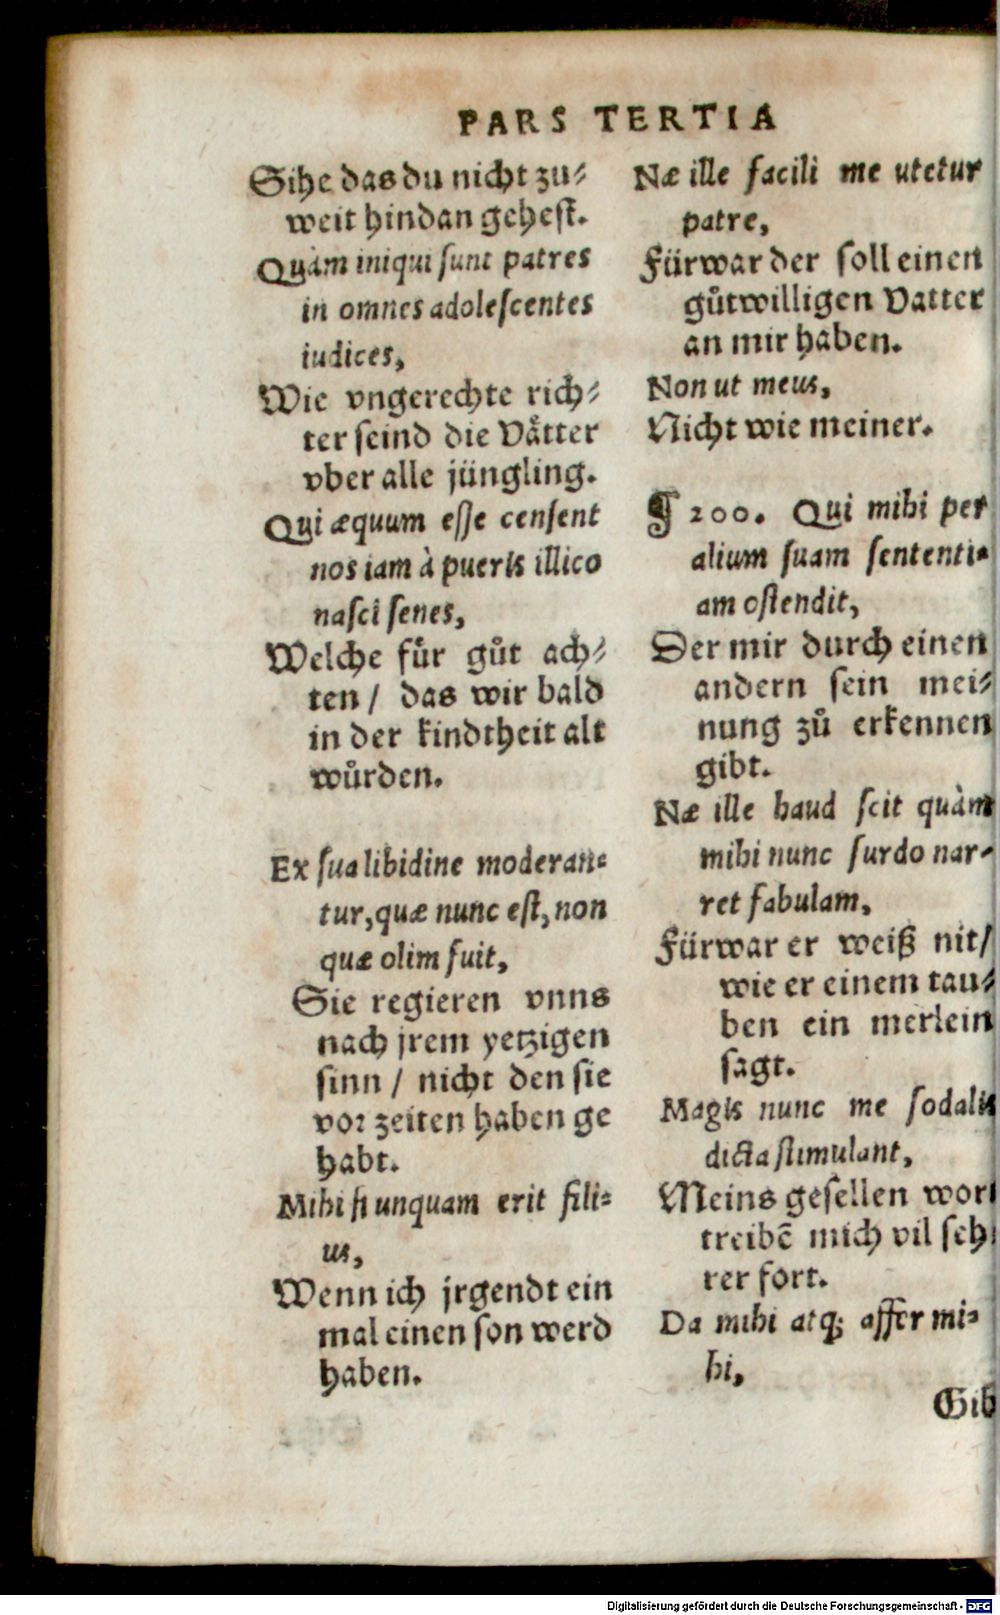 PARS TERTIA
Sihe das du nicht zu⸗
weit hindan gehest.
Quàm iniqui sunt patres
in omnes adolescentes
iudices,
Wie vngerechte rich⸗
ter seind die Vaͤtter
vber alle jüngling.
Qui æquum esse censent
nos iam à pueris illico
nasci senes,
Welche fuͤr guͦt ach⸗
ten / das wir bald
in der kindtheit alt
wuͤrden.
Ex sua libidine moderan⸗
tur, quæ nunc est, non
quæ olim fuit,
Sie regieren vnns
nach jrem yetzigen
sinn / nicht den sie
vor zeiten haben ge
habt.
Mihi si unquam erit fili⸗
us,
Wenn ich jrgendt ein
mal einen son werd
haben.
Næ ille facili me utetur
patre,
Fürwar der soll einen
guͦtwilligen Vatter
an mir haben.
Non ut meus,
Nicht wie meiner.
¶ 200. Qui mihi per
alium suam sententi⸗
am ostendit,
Der mir durch einen
andern sein mei⸗
nung zuͦ erkennen
gibt.
Næ ille haud scit quàm
mihi nunc surdo nar⸗
ret fabulam,
Fürwar er weiß nit/
wie er einem tau⸗
ben ein merlein
sagt.
Magis nunc me sodalis
dicta stimulant,
Meins gesellen wort
treibē mich vil seh⸗
rer fort.
Da mihi atq; affer mi⸗
hi,
Gib
Digitalisierung gefördert durch die Deutsche Forschungsgemeinschaft - DFG